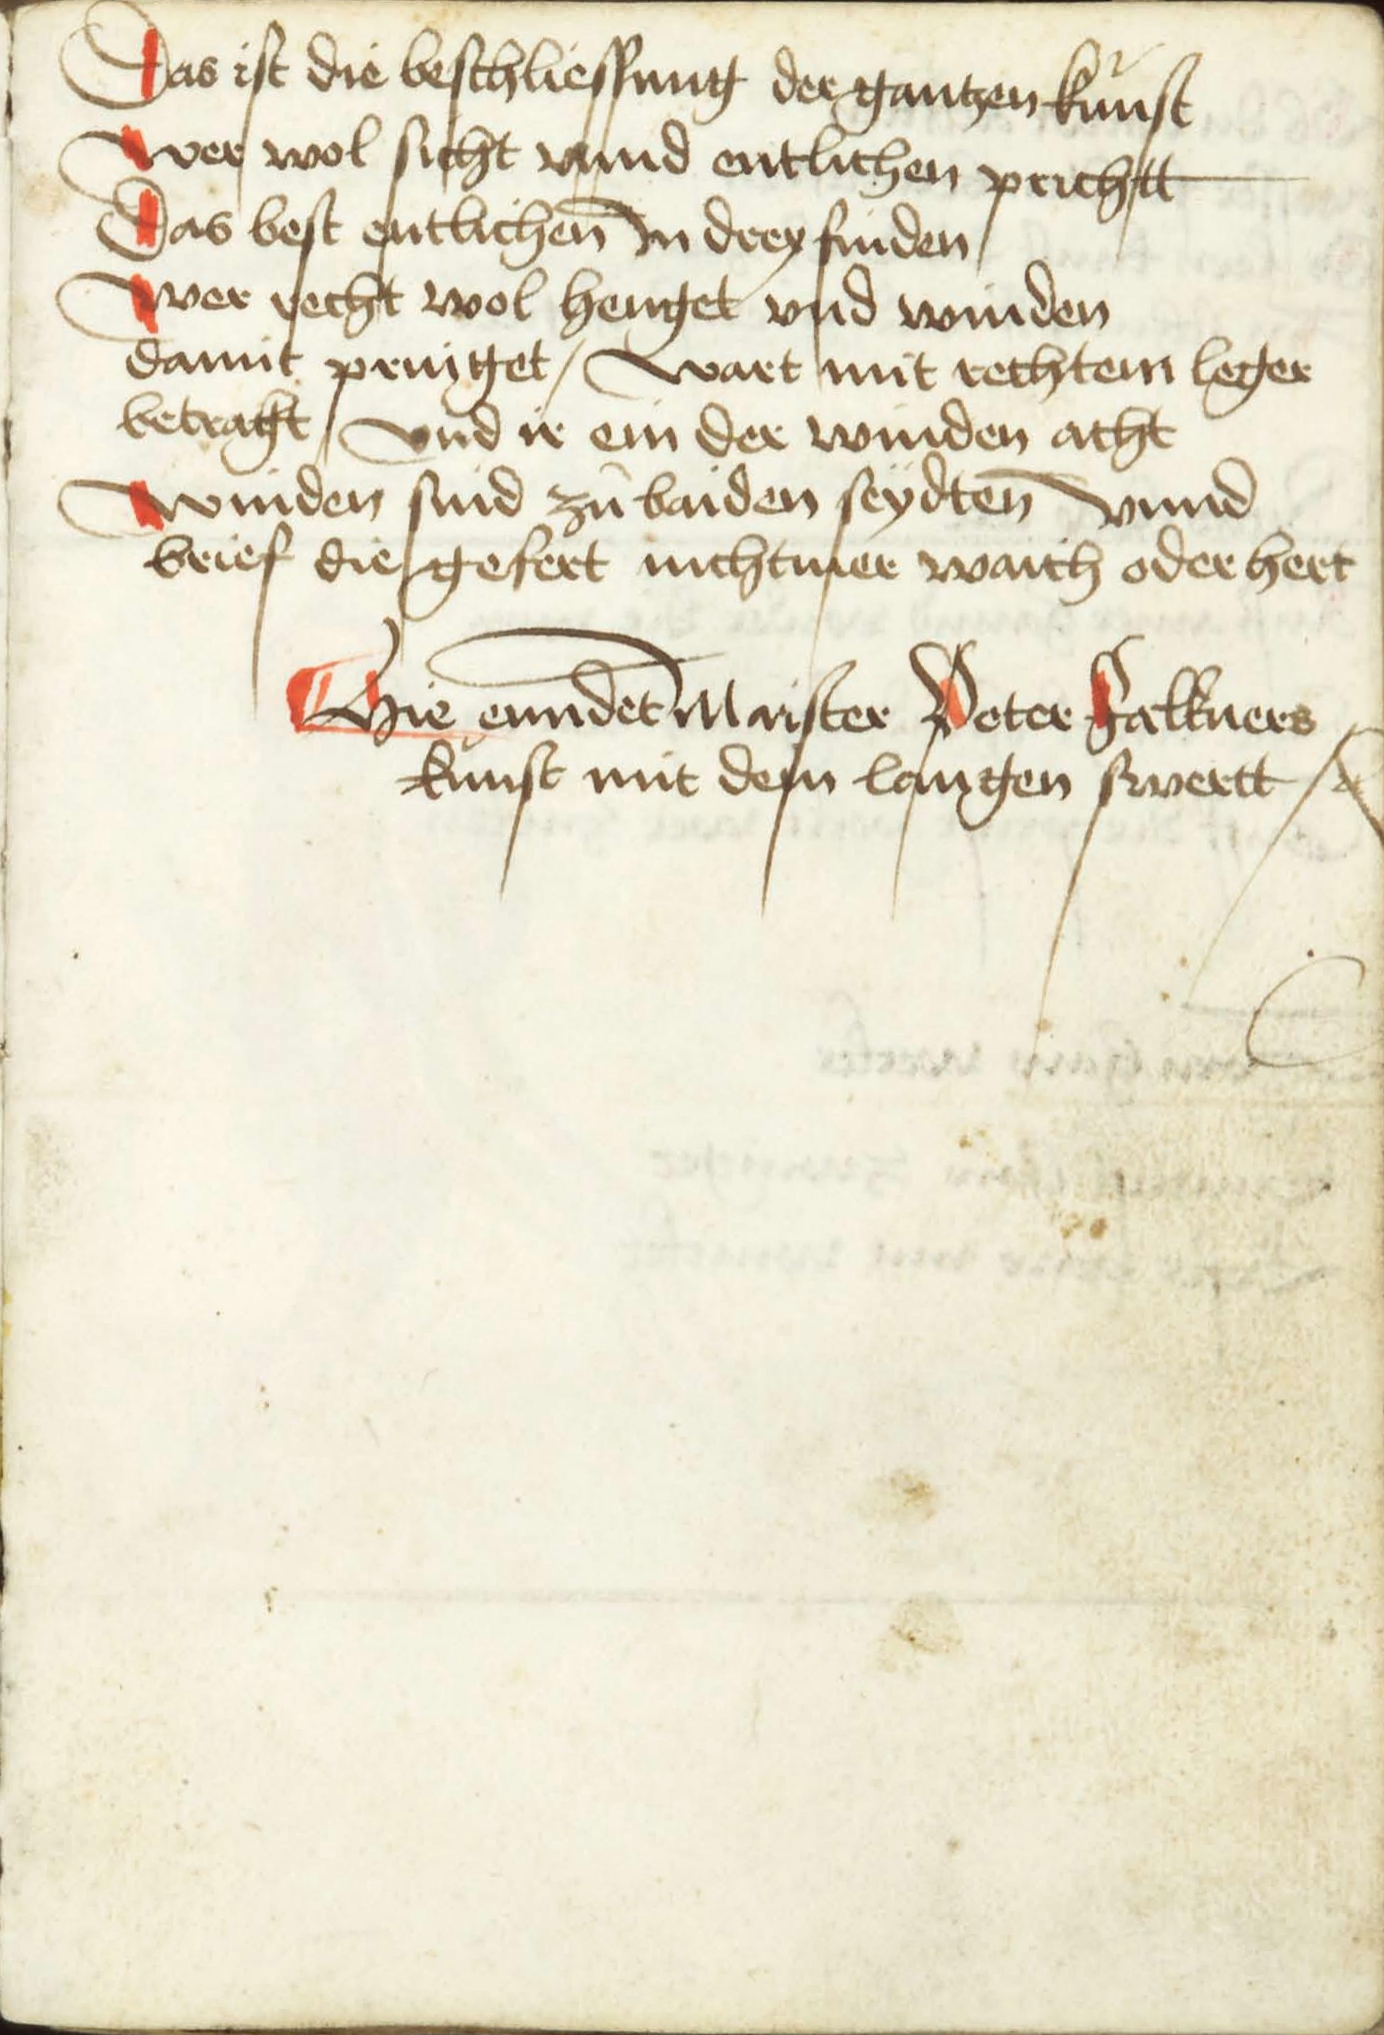 Das ist die beschliessung der gantzen kunst
Wer wol sicht vnnd entlichen prichtt
Das best entlichen̄ In drey finden
Wer recht wol henget vnd winden
damit pringet / Wart mit rechtem leger
betracht / Vnd ir ein der winden acht
Winden sind zů baiden seydten̄ Vnnd
brief die gefert nicht mer waich oder hert
Hie enndet Maister Peter Falkners
kůnst mit dem langen swertt /